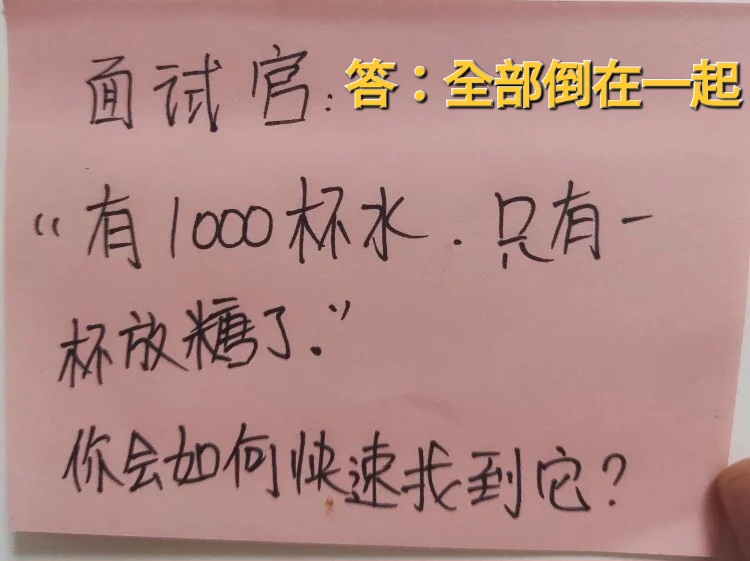 面试官: 答：全部倒在一起
“有1000杯水.只有一
杯放糖了.”
你会如何快速找到它?